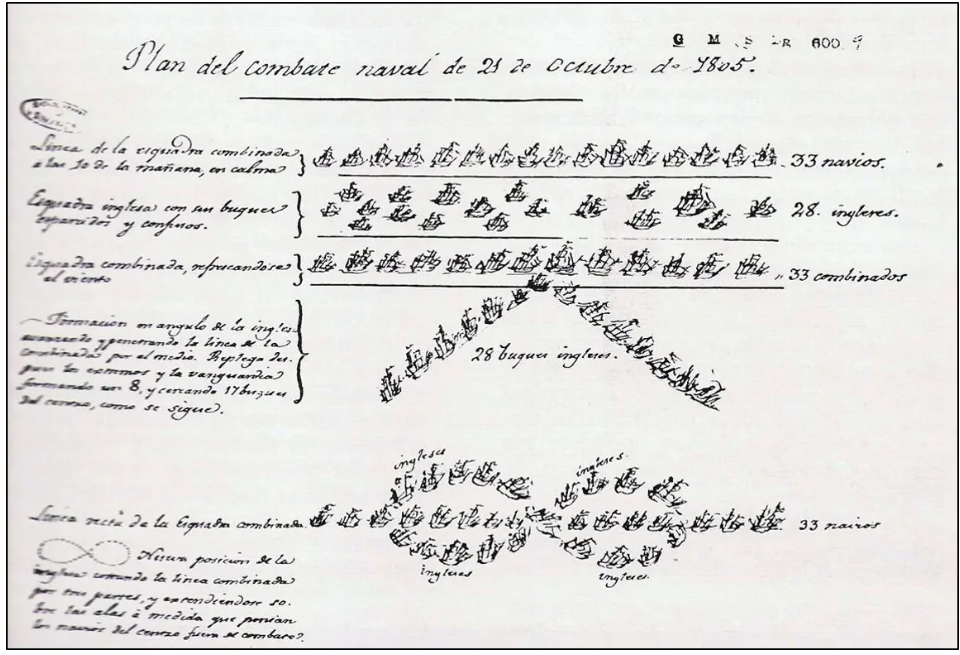 G M S 600.9
Plan del combate naval de 21 de Octubre de 1805.
Linea de la esquadra combinada
a las 10 de la mañana, en calma
33 navios.
Esquadra inglesa con sus buques
esparcidos y confusos.
28. ingleses.
Esquadra combinada, refrescandose
el viento
33 combinados
Formacion en angulo de la ingles
avanzando y penetrando la linea de la
combinada por el medio. Replega des.
pues los estremos y la vanguardia
formando un 8, y cercando 17 buques
del centro, como se sigue.
28 buques ingleses.
ingleses
ingleses.
Linea recta de la Esquadra combinada.
33 navios
ingleses
ingleses.
Nueva posicion de la
inglesa cortando la linea combinada
por tres partes, y extendiendose so.
bre las alas à medida que ponian
los navios del centro fuera de combate.